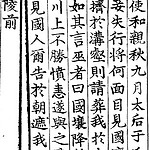 使和親秋九月太后于
妾失行將何面目見國
擠於溝壑則請葬我於
如其言巫者曰國壤降
川上不勝憤恚遂與之
見國人爾告於朝遮我
陵前